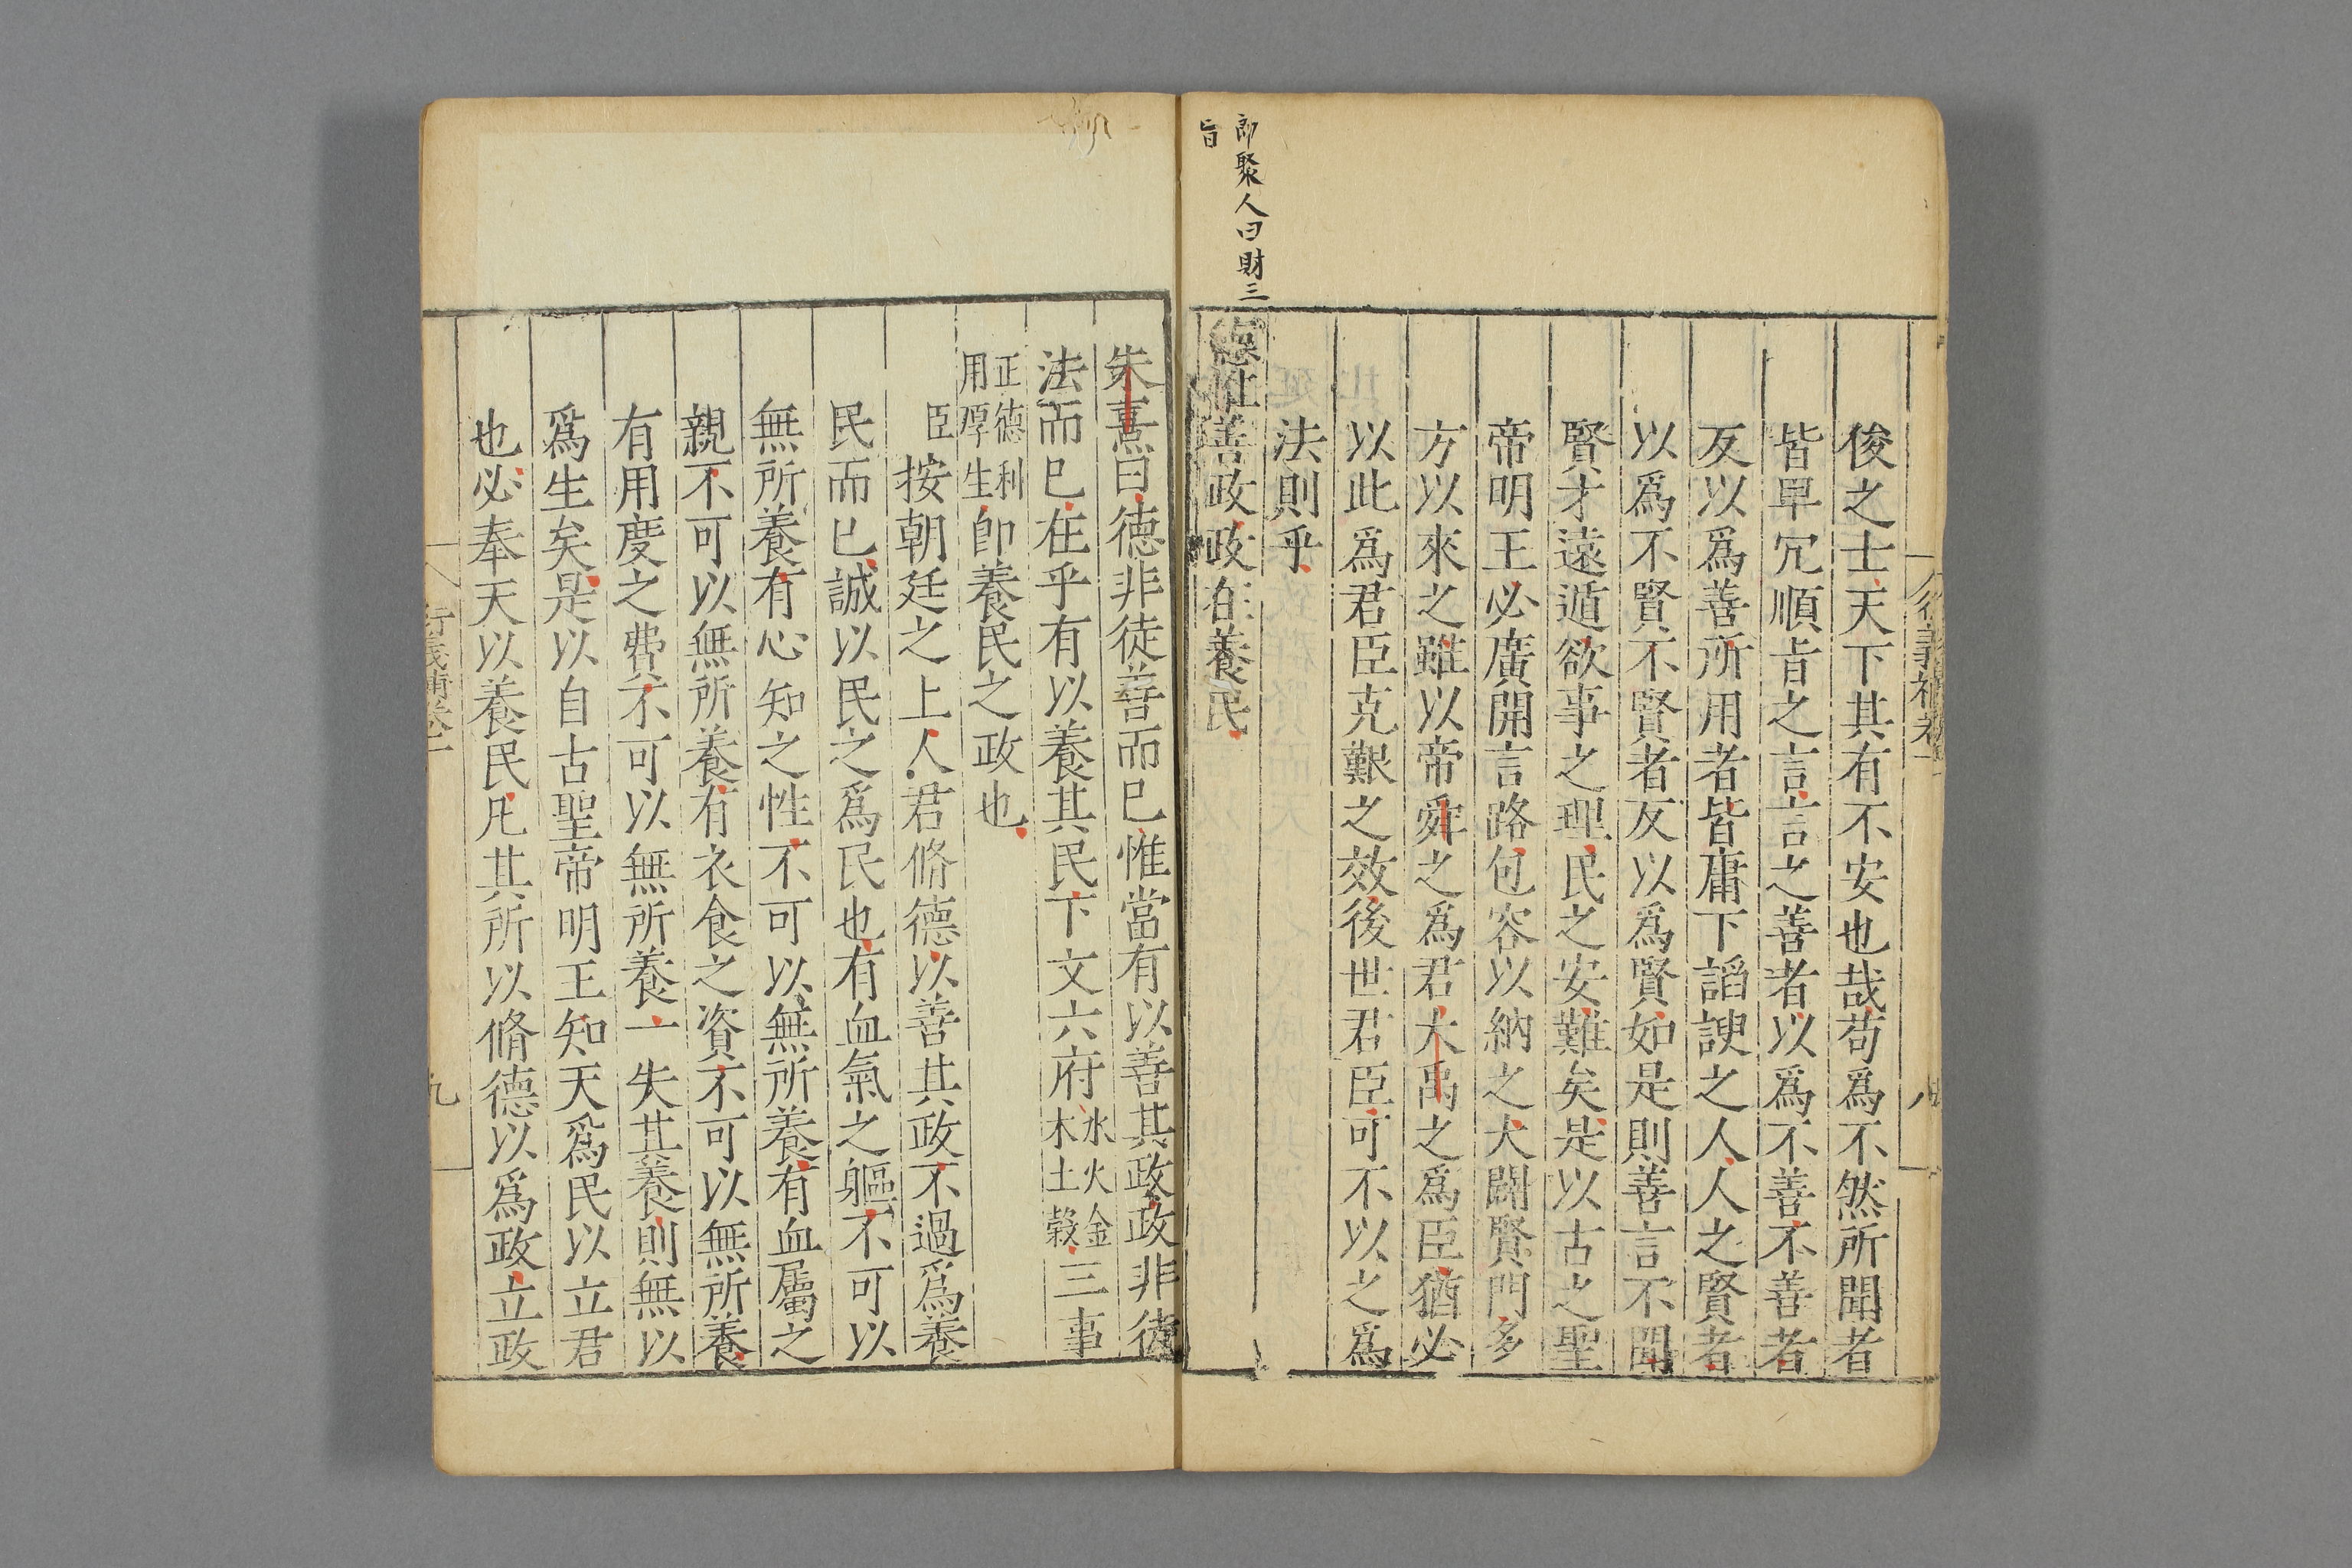 即聚人曰財三
旨
俊之士天下其有不安也哉苟爲不然所聞者
皆卑冗順旨之言言之善者以爲不善不善者
反以爲善所用者皆庸下謟諛之人人之賢者
以爲不賢不賢者反以爲賢如是則善言不聞
賢才遠遁欲事之理民之安難矣是以古之聖
帝明王必廣開言路包容以納之大闢賢門多
方以來之雖以帝舜之爲君大禹之爲臣猶必
以此爲君臣克艱之效後世君臣可不以之爲
法則乎
德惟善政政在養民
朱熹曰德非徒善而已惟當有以善其政政非徒
法而已在乎有以養其民下文六府水火金木土榖三事
正德利用厚生即養民之政也
臣按朝廷之上人君脩德以善其政不過爲養
民而已誠以民之爲民也有血氣之軀不可以
無所養有心知之性不可以無所養有血屬之
親不可以無所養有衣食之資不可以無所養
有用度之費不可以無所養一失其養則無以
爲生矣是以自古聖帝明王知天爲民以立君
也必奉天以養民凡其所以脩德以爲政立政
九